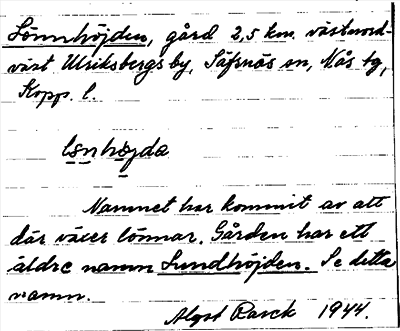 Lönnhöjden, gård 2,5 km. västnord-
väst Ulriksbergs by, Säfsnäs sn, Nås tg,
Kopp. l.
lönhöjda
Namnet har kommit av att
där växer lönnar. Gården har ett
äldre namn Lundhöjden. Se detta
namn.
Algot Rasck 1944.